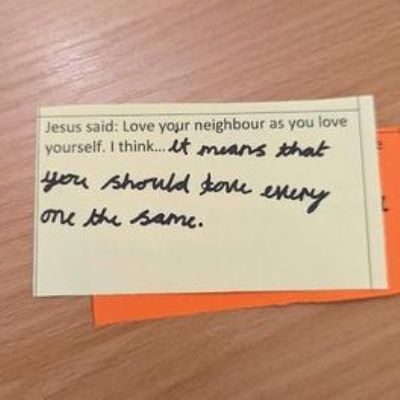 Jesus said: Love your neighbour as you love
yourself. I think... it means that
you should love every
one the same.